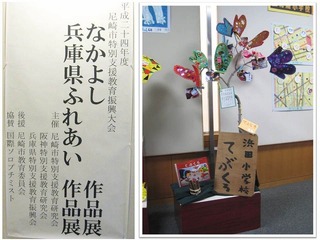 平成二十四年度
尼崎市特別支援教育振興大会
なかよし 作品展
兵庫県ふれあい 作品展
主催 尼崎市特別支援教育研究会
阪神特別支援教育研究会
兵庫県特別支援教育振興会
後援 尼崎市教育委員会
協賛 国際ソロプチミスト
浜田小学校
てぶくろ